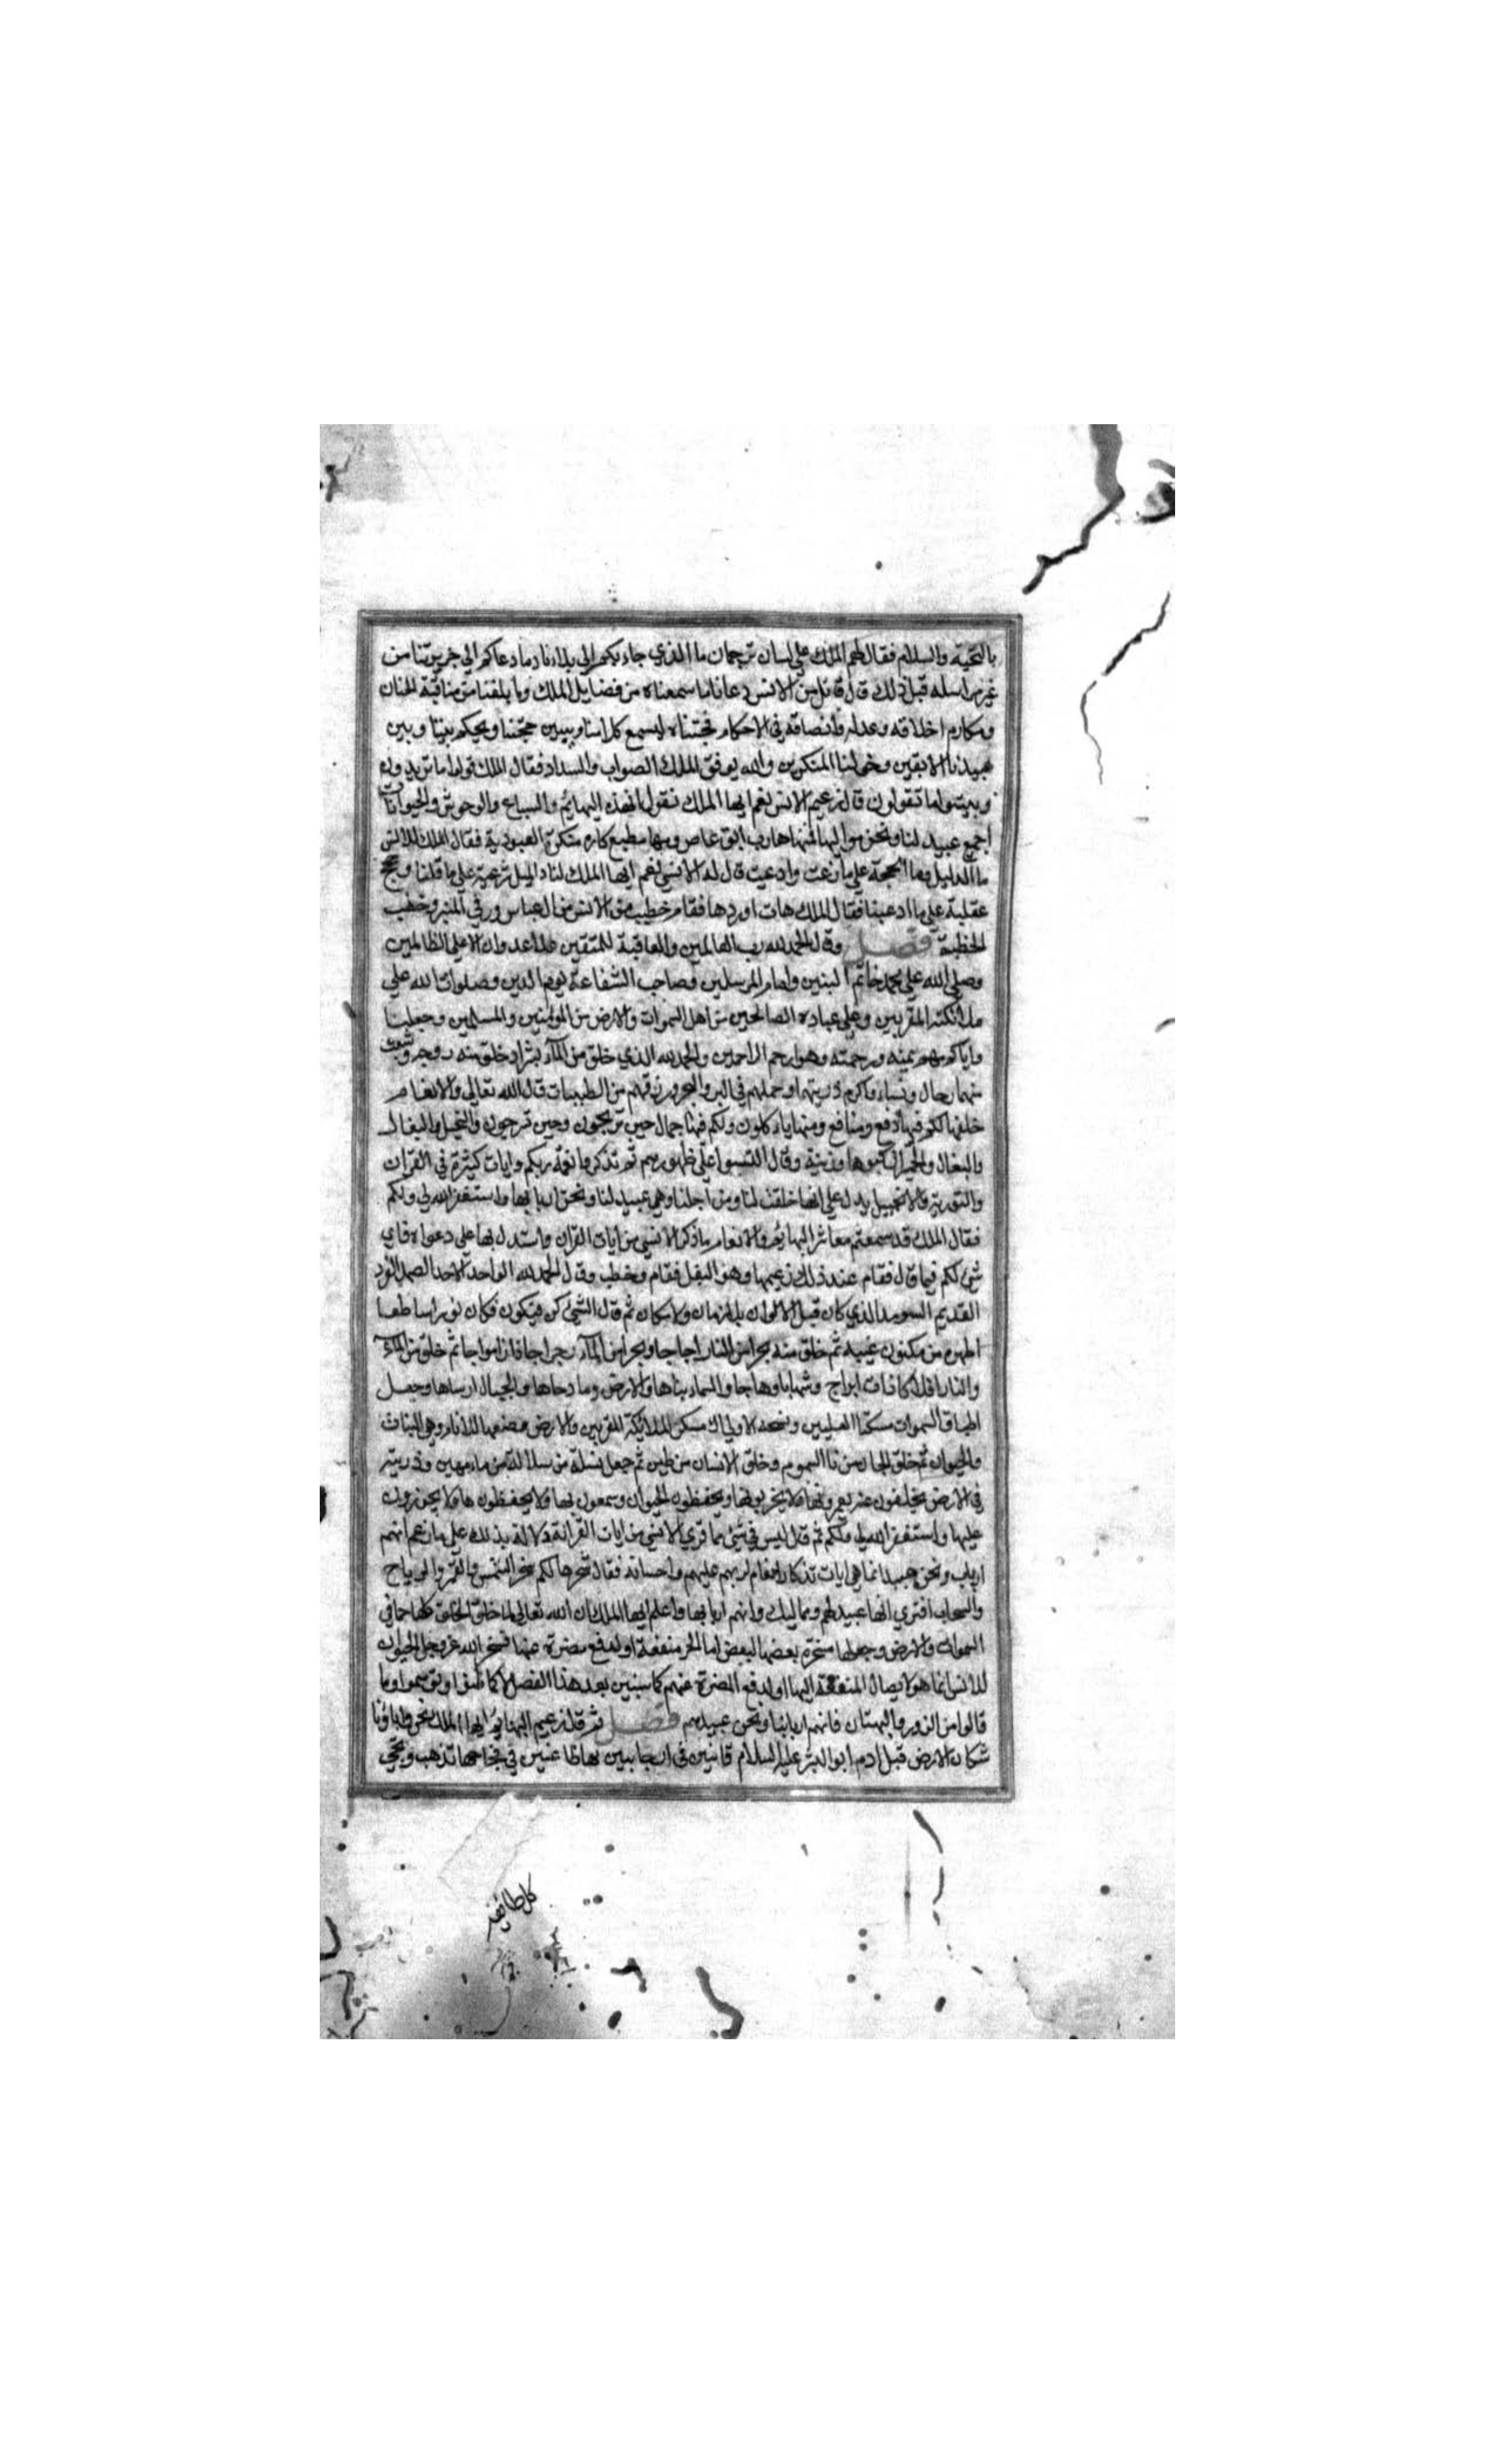 بالتحية والسلام فقال لهم الملك على لسان ترجمان ما الذي جاء بكم الى بلادنا وما دعاكم الى جزيرتنا من
غير مراسله قبل ذلك قال قائل من الانس دعانا ما سمعناه من فضايل الملك وما بلغنا من مناقبه الحسان
ومكارم اخلاقه وعدله وانصافه في الاحكام فجئناه ليسمع كلامنا ويبين حجتنا ويحكم بيننا وبين
عبيدنا الابقين وخولنا المنكرين والله يوفق الملك الصواب والسداد فقال الملك قولوا ما تريدون
وبينوا ما تقولون قال زعيم الانس نعم ايها الملك نقول ان هذه البهائم والسباع والوحوش والحيوانات
اجمع عبيد لنا ونحن مواليها فمنها هارب ابق عاص ومنها مطيع كاره منكرة العبودية فقال الملك للانس
ما الدليل وما الحجة على ما زعمت وادعيت قال له الانسي نعم ايها الملك لنا دلايل شرعية على ما قلنا وحجج
عقلية على ما ادعينا فقال الملك هات اوردها فقام خطيب من الانس من ال عباس ورقى المنبر وخطب
الخطبة فصل وقال الحمد لله رب العالمين والعاقبة للمتقين ولا عدوان الا على الظالمين
وصلى الله على محمد خاتم النبيين وامام المرسلين وصاحب الشفاعة يوم الدين وصلوات الله على
ملائكته المقربين وعلى عباده الصالحين من اهل السموات والارض من المؤمنين والمسلمين وجعلنا
واياكم منهم بمنه ورحمته وهو ارحم الراحمين والحمد لله الذي خلق من الماء بشرا وخلق منه زوجه وبث
منهما رجال ونساء واكرم ذريتهما وحملهم في البر والبحر ورزقهم من الطيبات قال الله تعالى والانعام
خلقها لكم فيها دفع ومنافع ومنها ياءكلون ولكم فيها جمال حين تريحون وحين ترحون والخيل والبغال
والبغال والحمير لتركبوها وزينة وقال لتستوا على ظهورهم ثم تذكروا نعمة ربكم وايات كثيرة في القران
والتورية والانجيل يدل على انها خلقت لنا ومن اجلنا وهي عبيد لنا ونحن اربابها واستغفر الله لي ولكم
فقال الملك قد سمعتم معاشر البهائم والانعام ما ذكر الانسي من ايات القران واستدل بها على دعواه فاي
شئ لكم فيما قال فقام عند ذلك زعيمها وهو البغل فقام وخطب وقال الحمد لله الواحد الاحد الصمد الفرد
القديم السرمد الذي كان قبل الاكوان بلا زمان ولا مكان ثم قال الشئ كن فيكون فكان نورا ساطعا
اظهره من مكنون غيبه ثم خلق منه بحرا من النار اجاجا وبحرا من الماء رجراجا فان امواجا ثم خلق من الماء
والنار افلاكا ذات ابراج وشهابا وهاجا والسماء بناها والارض وما دحاها والجبال ارساها وجعل
اطباق السموات مسكنا العليين مسكن الملائكة المقربين والارض وضعها للانام وهي النبات
والحيوان ثم خلق الجان من نار السموم وخلق الانسان من طين ثم جعل نسله من سلالة من ماء مهين وذريته
في الارض يخلفون ولا يخربونها ويحفظون الحيوان
عليها واستغفر الله لي ولكم ثم قال ليس في شئ مما قرى الانسي من ايات القرانة دلالة بذلك على ما زعم انهم
ارباب ونحن عبيد انما هي ايات تذكار انعام لربهم عليهم واحسانه فقال سخرها لكم سخر الشمس والقمر والرياح
والسحاب افترى انها عبيد لهم ومماليك وانهم اربابها واعلم ايها الملك ان الله تعالى لما خلق الخلق كلها ما في
السموات والارض وجعلها مسخرة بعضها لبعض اما لجر منفعة او لدفع مضرة عنها فسخر الله عز وجل الحيوان
للانس انما هو لايصال المنفعة اليها او لدفع المضرة عنهم كما سنبين بعد هذا الفصل لا كما ظنوا وتوسموا وما
قالوا من الزور والبهتان فانهم اربابنا ونحن عبيدهم فصل ثم قال زعيم البهايم ايها الملك نحن واباؤنا
سكان الارض قبل ادم ابو البشر عليه السلام فجاجها تذهب وتجئ
كل طائفة